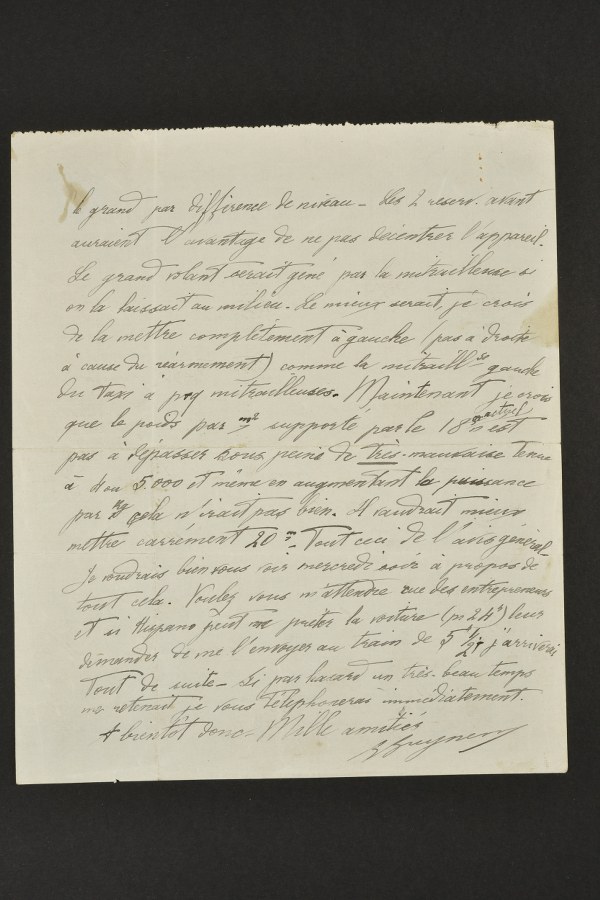 le grand par différence de niveau - Les 2 reserv. avant
auraient l'avantage de ne pas décentrer l'appareil.
Le grand volant serait géné par la mitrailleuse si
on la laissait au milieu. Le mieux serait, je crois
de la mettre complètement à gauche (pas à droite
à cause du réarmement) comme la mitraill.se gauche
du taxi à mitrailleuses. Maintenant je crois
que le poids par m2 supporté par le 18m actuel n'est
pas à dépasser sous peine de très-mauvaise tenue
à 4 ou 5.000 et même en augmentant la puissance
par kg cela n'irait pas bien. Il vaudrait mieux
mettre carrément 20 m2 - Tout ceci de l'avis général -
Je voudrais bien vous voir mercredi soir à propos de
tout cela. Voulez vous m'attendre rue des entrepreneurs
et si Hispano peut me prêter la voiture (pr 24h) leur
demander de me l'envoyer au train de 5h 1/2 j'arriverai
tout de suite - Si par hasard un très-beau temps
me retenait je vous téléphonerai immédiatement.
A bientôt donc - Mille amitiés
Guynemer